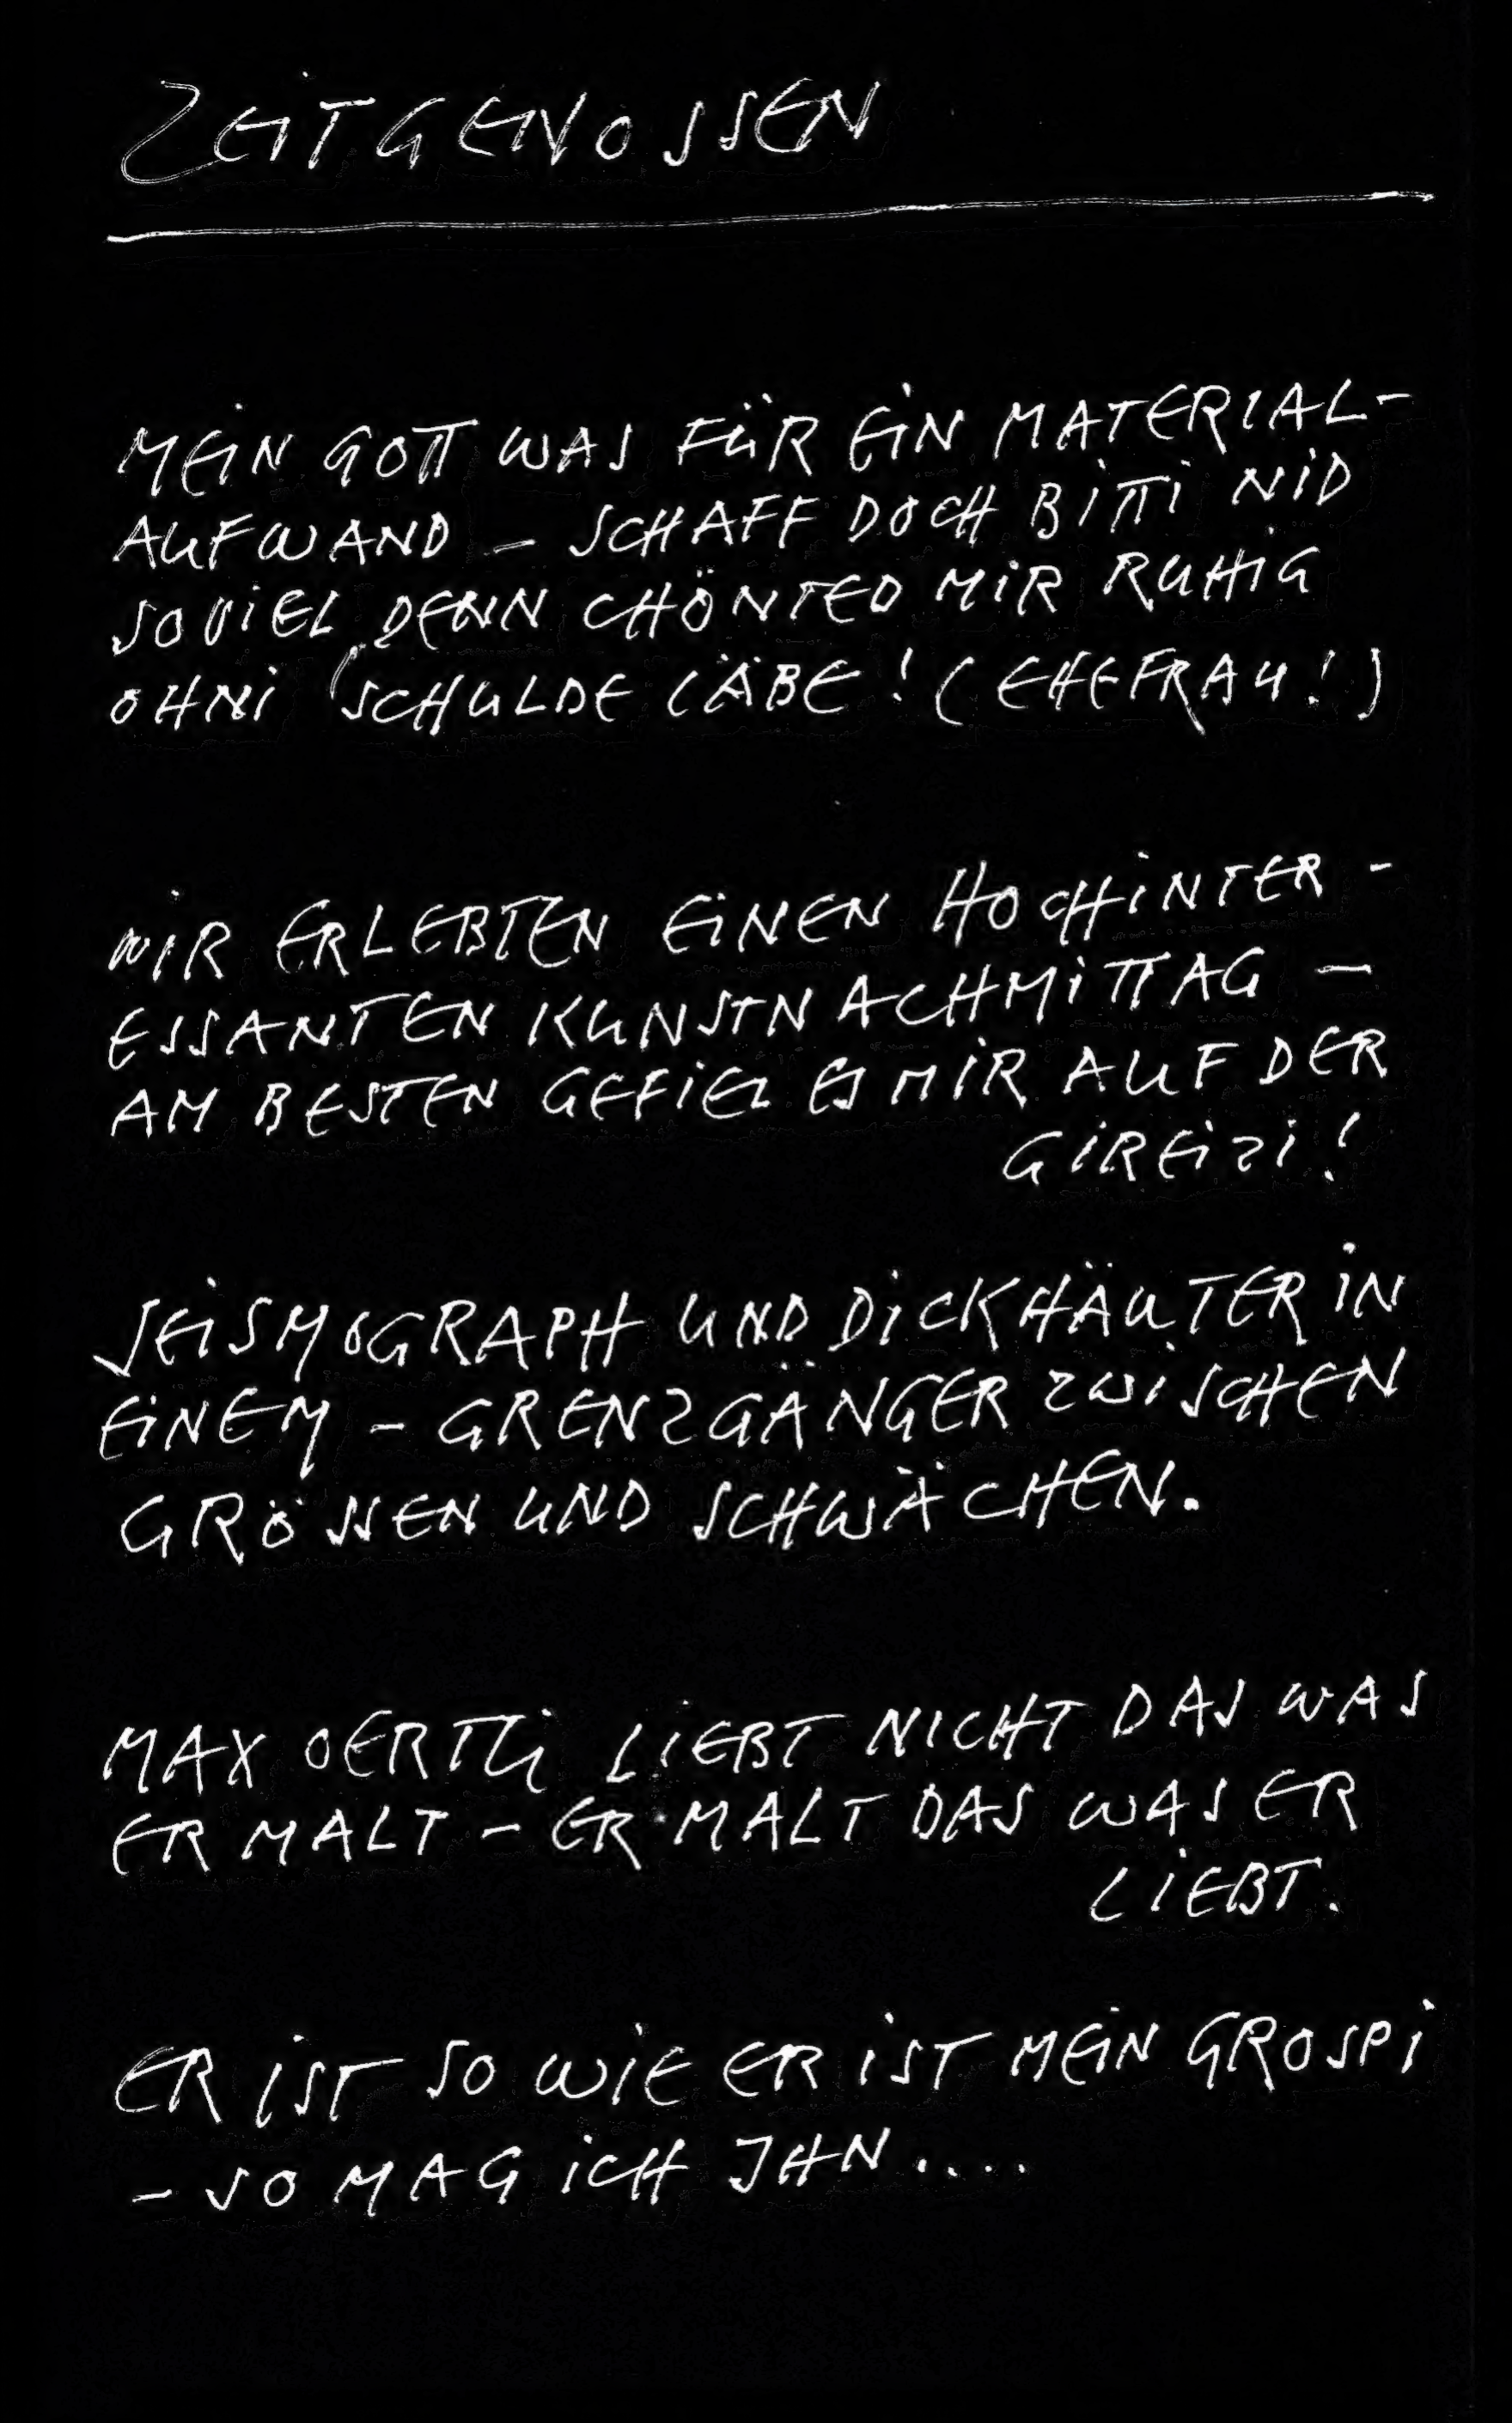 ZEITGENOSSEN
MEIN GOTT WAS FÜR EIN MATERIAL-
AUFWAND – SCHAFF DOCH BITTI NID
SOVIEL DENN CHÖNTED MIR RUHIG
OHNI SCHULDE LÄBE! (EHEFRAU!)
WIR ERLEBTEN EINEN HOCHINTER-
ESSANTEN KUNSTNACHMITTAG –
AM BESTEN GEFIEL ES MIR AUF DER
GIREIZI!
SEISMOGRAPH UND DICKHÄUTER IN
EINEM – GRENZGÄNGER ZWISCHEN
GRÖSSEN UND SCHWÄCHEN.
MAX OERTLI LIEBT NICHT DAS WAS
ER MALT – ER MALT DAS WAS ER
LIEBT.
ER IST SO WIE ER IST MEIN GROSPI
– SO MAG ICH IHN....